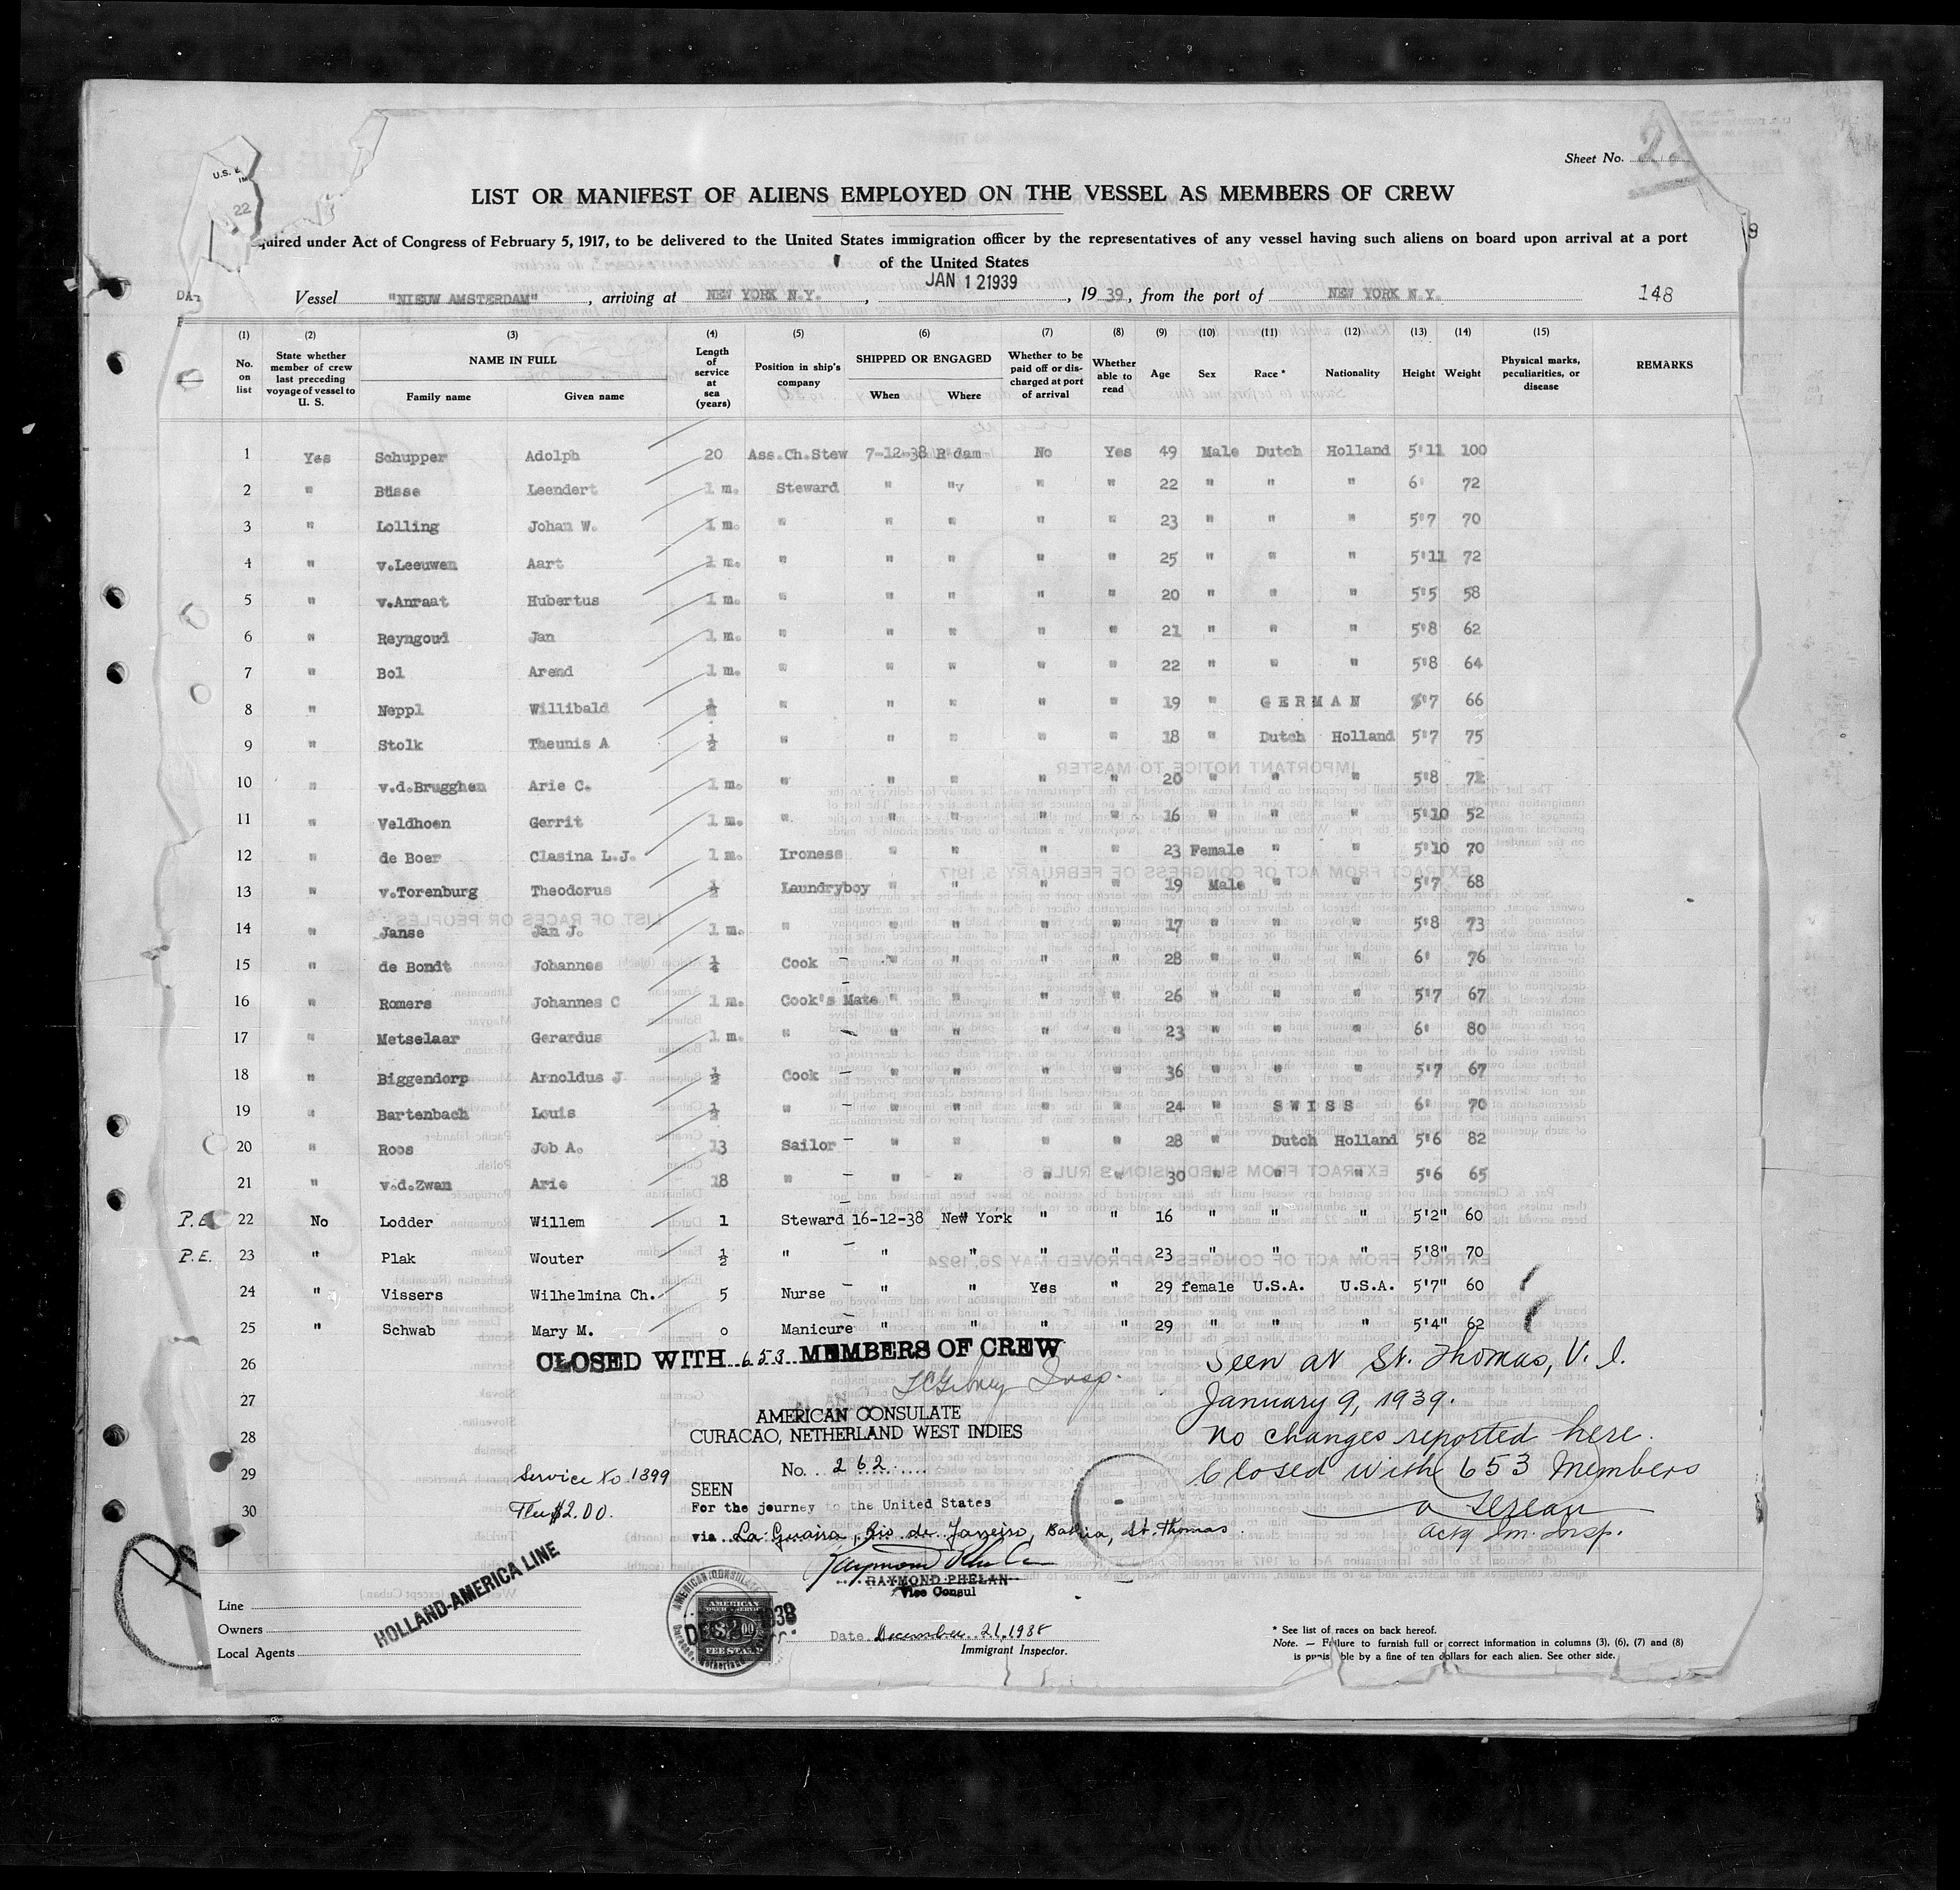 Sheet No. 2.
U.S. I
IM
22
LIST OR MANIFEST OF ALIENS EMPLOYED ON THE VESSEL AS MEMBERS OF CREW
quired under Act of Congress of February 5, 1917, to be delivered to the United States immigration officer by the representatives of any vessel having such aliens on board upon arrival at a port
of the United States
JAN 12 1939
Vessel "NIEUW AMSTERDAM", arriving at NEW YORK N.Y., , 1939, from the port of NEW YORK N.Y. 148
(1) (2) (3) (4) (5) (6) (7) (8) (9) (10) (11) (12) (13) (14) (15)
No. on list State whether member of crew last preceding voyage of vessel to U. S. NAME IN FULL Family name Given name Length of service at sea (years) Position in ship's company SHIPPED OR ENGAGED When Where Whether to be paid off or discharged at port of arrival Whether able to read Age Sex Race * Nationality Height Weight Physical marks, peculiarities, or disease REMARKS
1 Yes Schupper Adolph 20 Ass.Ch.Stew 7-12-38 R dam No Yes 49 Male Dutch Holland 5'11 100
2 " Büsse Leendert 1 m. Steward " "v " " 22 " " " 6' 72
3 " Lolling Johan W. 1 m. " " " " " 23 " " " 5'7 70
4 " v.Leeuwen Aart 1 m. " " " " " 25 " " " 5'11 72
5 " v.Anraat Hubertus 1 m. " " " " " 20 " " " 5'5 58
6 " Reyngoud Jan 1 m. " " " " " 21 " " " 5'8 62
7 " Bol Arend 1 m. " " " " " 22 " " " 5'8 64
8 " Neppl Willibald ½ " " " " " 19 " GERMAN 5'7 66
9 " Stolk Theunis A ½ " " " " " 18 " Dutch Holland 5'7 75
10 " v.d.Brugghen Arie C. 1 m. " " " " " 20 " " " 5'8 72
11 " Veldhoen Gerrit 1 m. " " " " " 16 " " " 5'10 52
12 " de Boer Clasina L.J. 1 m. Ironess " " " " 23 Female " " 5'10 70
13 " v.Torenburg Theodorus ½ Laundryboy " " " " 19 Male " " 5'7 68
14 " Janse Jan J. 1 m. " " " " " 17 " " " 5'8 73
15 " de Bondt Johannes ¼ Cook " " " " 28 " " " 6' 76
16 " Romers Johannes C 1 m. Cook's Mate " " " " 26 " " " 5'7 67
17 " Metselaar Gerardus 1 m. " " " " " 23 " " " 6' 80
18 " Biggendorp Arnoldus J ½ Cook " " " " 36 " " " 5'7 67
19 " Bartenbach Louis ½ " " " " " 24 " SWISS 6' 70
20 " Roos Job A. 13 Sailor " " " " 28 " Dutch Holland 5'6 82
21 " v.d.Zwan Arie 18 " " " " " 30 " " " 5'6 65
P.E. 22 No Lodder Willem 1 Steward 16-12-38 New York " " 16 " " " 5'2" 60
P.E. 23 " Plak Wouter ½ " " " " " 23 " " " 5'8" 70
24 " Vissers Wilhelmina Ch. 5 Nurse " " Yes " 29 female U.S.A. U.S.A. 5'7" 60
25 " Schwab Mary M. o Manicure " " " " 29 " " " 5'4" 62
26
27
28
29
30
CLOSED WITH 653 MEMBERS OF CREW
Insp.
AMERICAN CONSULATE
CURACAO, NETHERLAND WEST INDIES
No. 262
SEEN
For the journey to the United States
via La Guaira, Rio de Janeiro, Bahia, St. Thomas
RAYMOND PHELAN
Vice Consul
Service No. 1399
Fee $2.00.
Seen at St. Thomas, V. I.
January 9, 1939.
No changes reported here.
Closed with 653 Members
Actg Im. Insp.
HOLLAND-AMERICA LINE
Line
Owners
Local Agents
AMERICAN CONSULATE
AMERICAN
FEE STAMP
Date December 21, 1938
Immigrant Inspector.
* See list of races on back hereof.
Note. — Failure to furnish full or correct information in columns (3), (6), (7) and (8)
is punishable by a fine of ten dollars for each alien. See other side.